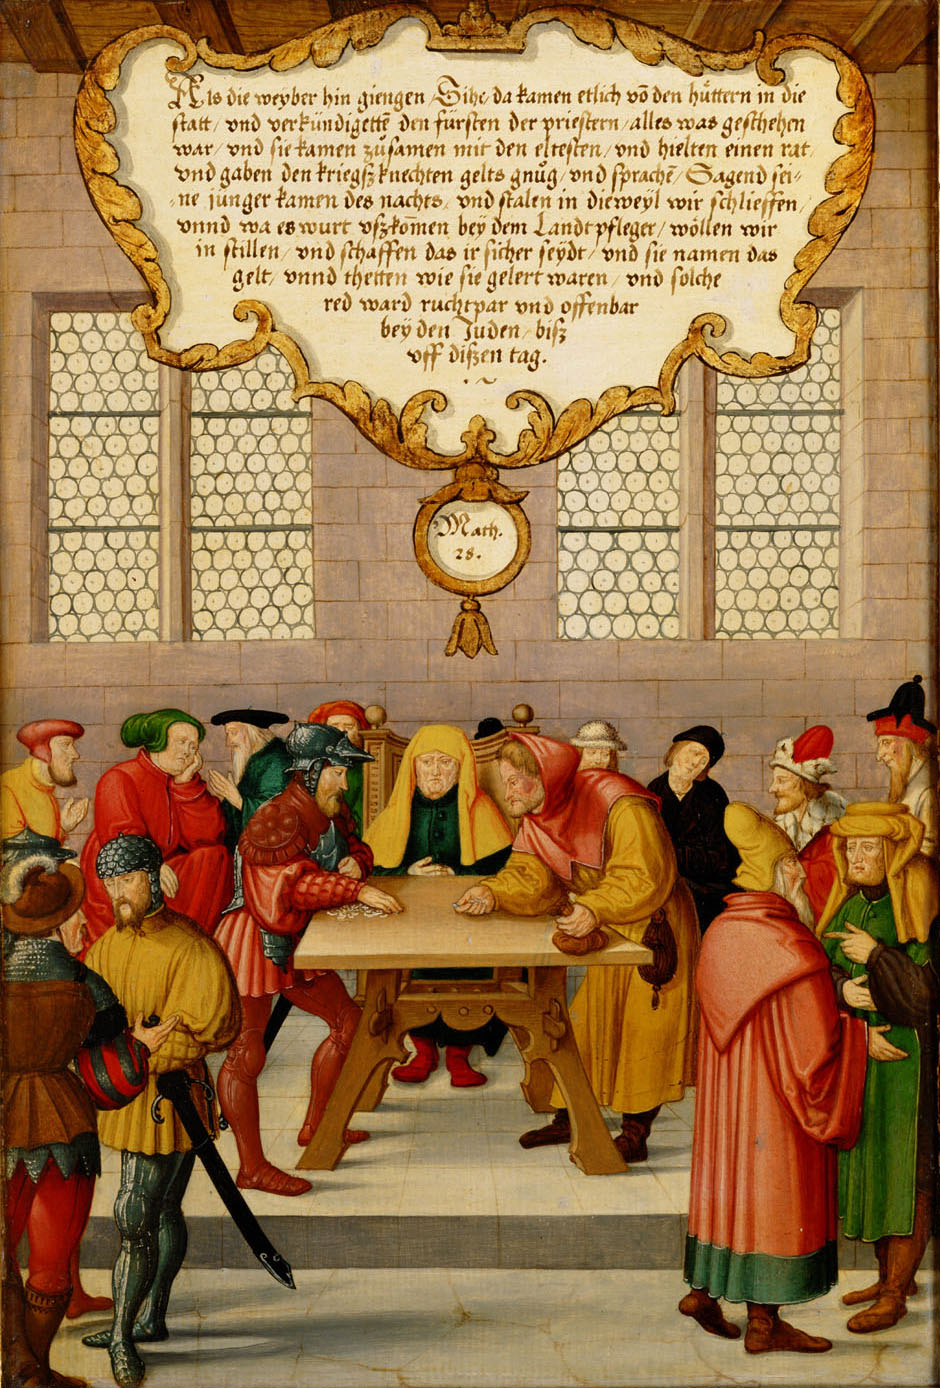 Als die weyber hin giengen / Sihe / da kamen etlich võ den hůttern in die
statt / vnd verkündigettẽ den fürsten der priestern / alles was geschehen
war / vnd sie kamen zůsamen mit den eltesten / vnd hielten einen rat /
vnd gaben den kriegsz knechten gelts gnůg / vnd sprachẽ / Sagend sei=
=ne junger kamen des nachts / vnd stalen in dieweyl wir schlieffen /
vnnd wa es wurt vszkom̃en bey dem Landtpfleger / wöllen wir
in stillen / vnd schaffen das ir sicher seydt / vnd sie namen das
gelt / vnnd thetten wie sie gelert waren / vnd solche
red ward ruchtpar vnd offenbar
bey den Juden / bisz
vff diszen tag.
Math.
28.